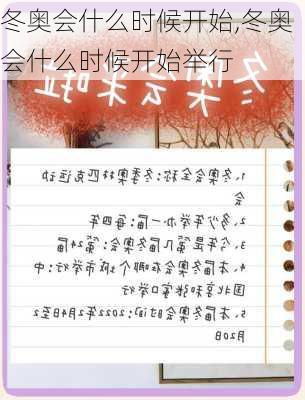 冬奥会什么时候开始,冬奥
会什么时候开始举行
冬奥会来啦
1、冬奥会全称:冬季奥林匹克运动
会
2、多少年举办一届:每四年
3、今年是第几届冬奥会:第24届
4、本届冬奥会在哪个城市举行:中
国北京和张家口举行
5、本届冬奥会时间:2022年2月4日至2
月20日